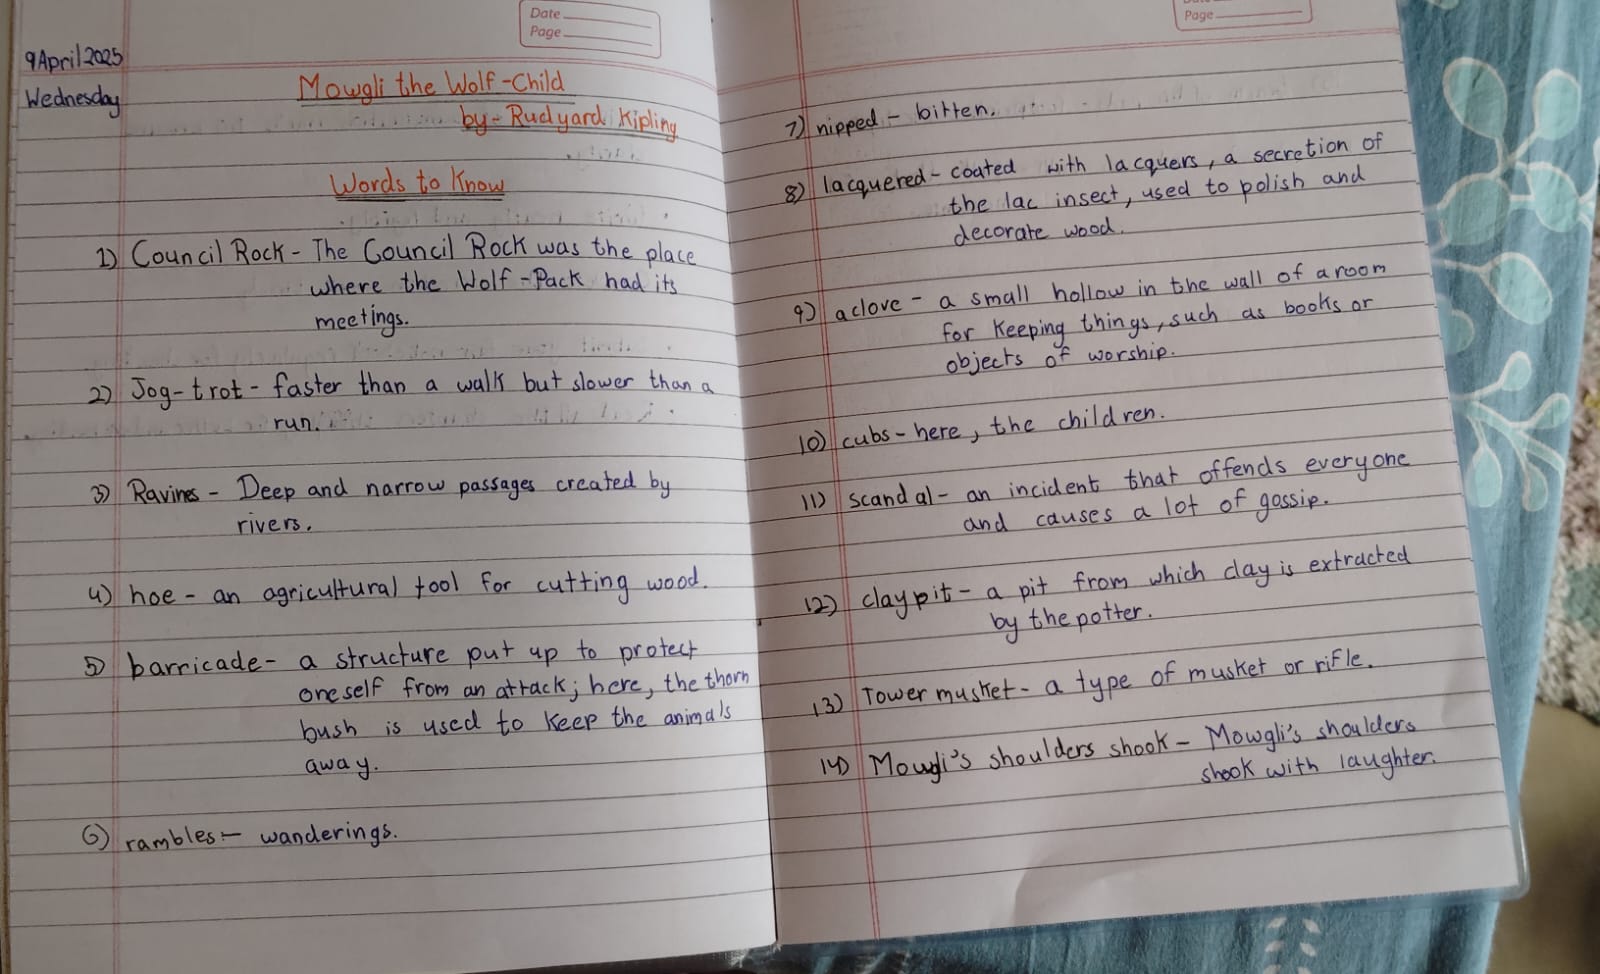 Date
Page
9 April 2025
Wednesday
Mowgli the Wolf-Child
by- Rudyard Kipling
Words to Know
1) Council Rock - The Council Rock was the place
where the Wolf-Pack had its
meetings.
2) Jog-trot - faster than a walk but slower than a
run.
3) Ravines - Deep and narrow passages created by
rivers.
4) hoe - an agricultural tool for cutting wood.
5) barricade - a structure put up to protect
oneself from an attack; here, the thorn
bush is used to keep the animals
away.
6) rambles:- wanderings.
Page
7) nipped - bitten.
8) lacquered - coated with lacquers, a secretion of
the lac insect, used to polish and
decorate wood.
9) aclove - a small hollow in the wall of a room
for keeping things, such as books or
objects of worship.
10) cubs - here, the children.
11) scandal - an incident that offends everyone
and causes a lot of gossip.
12) clay pit - a pit from which clay is extracted
by the potter.
13) Tower musket - a type of musket or rifle.
14) Mowgli's shoulders shook - Mowgli's shoulders
shook with laughter.